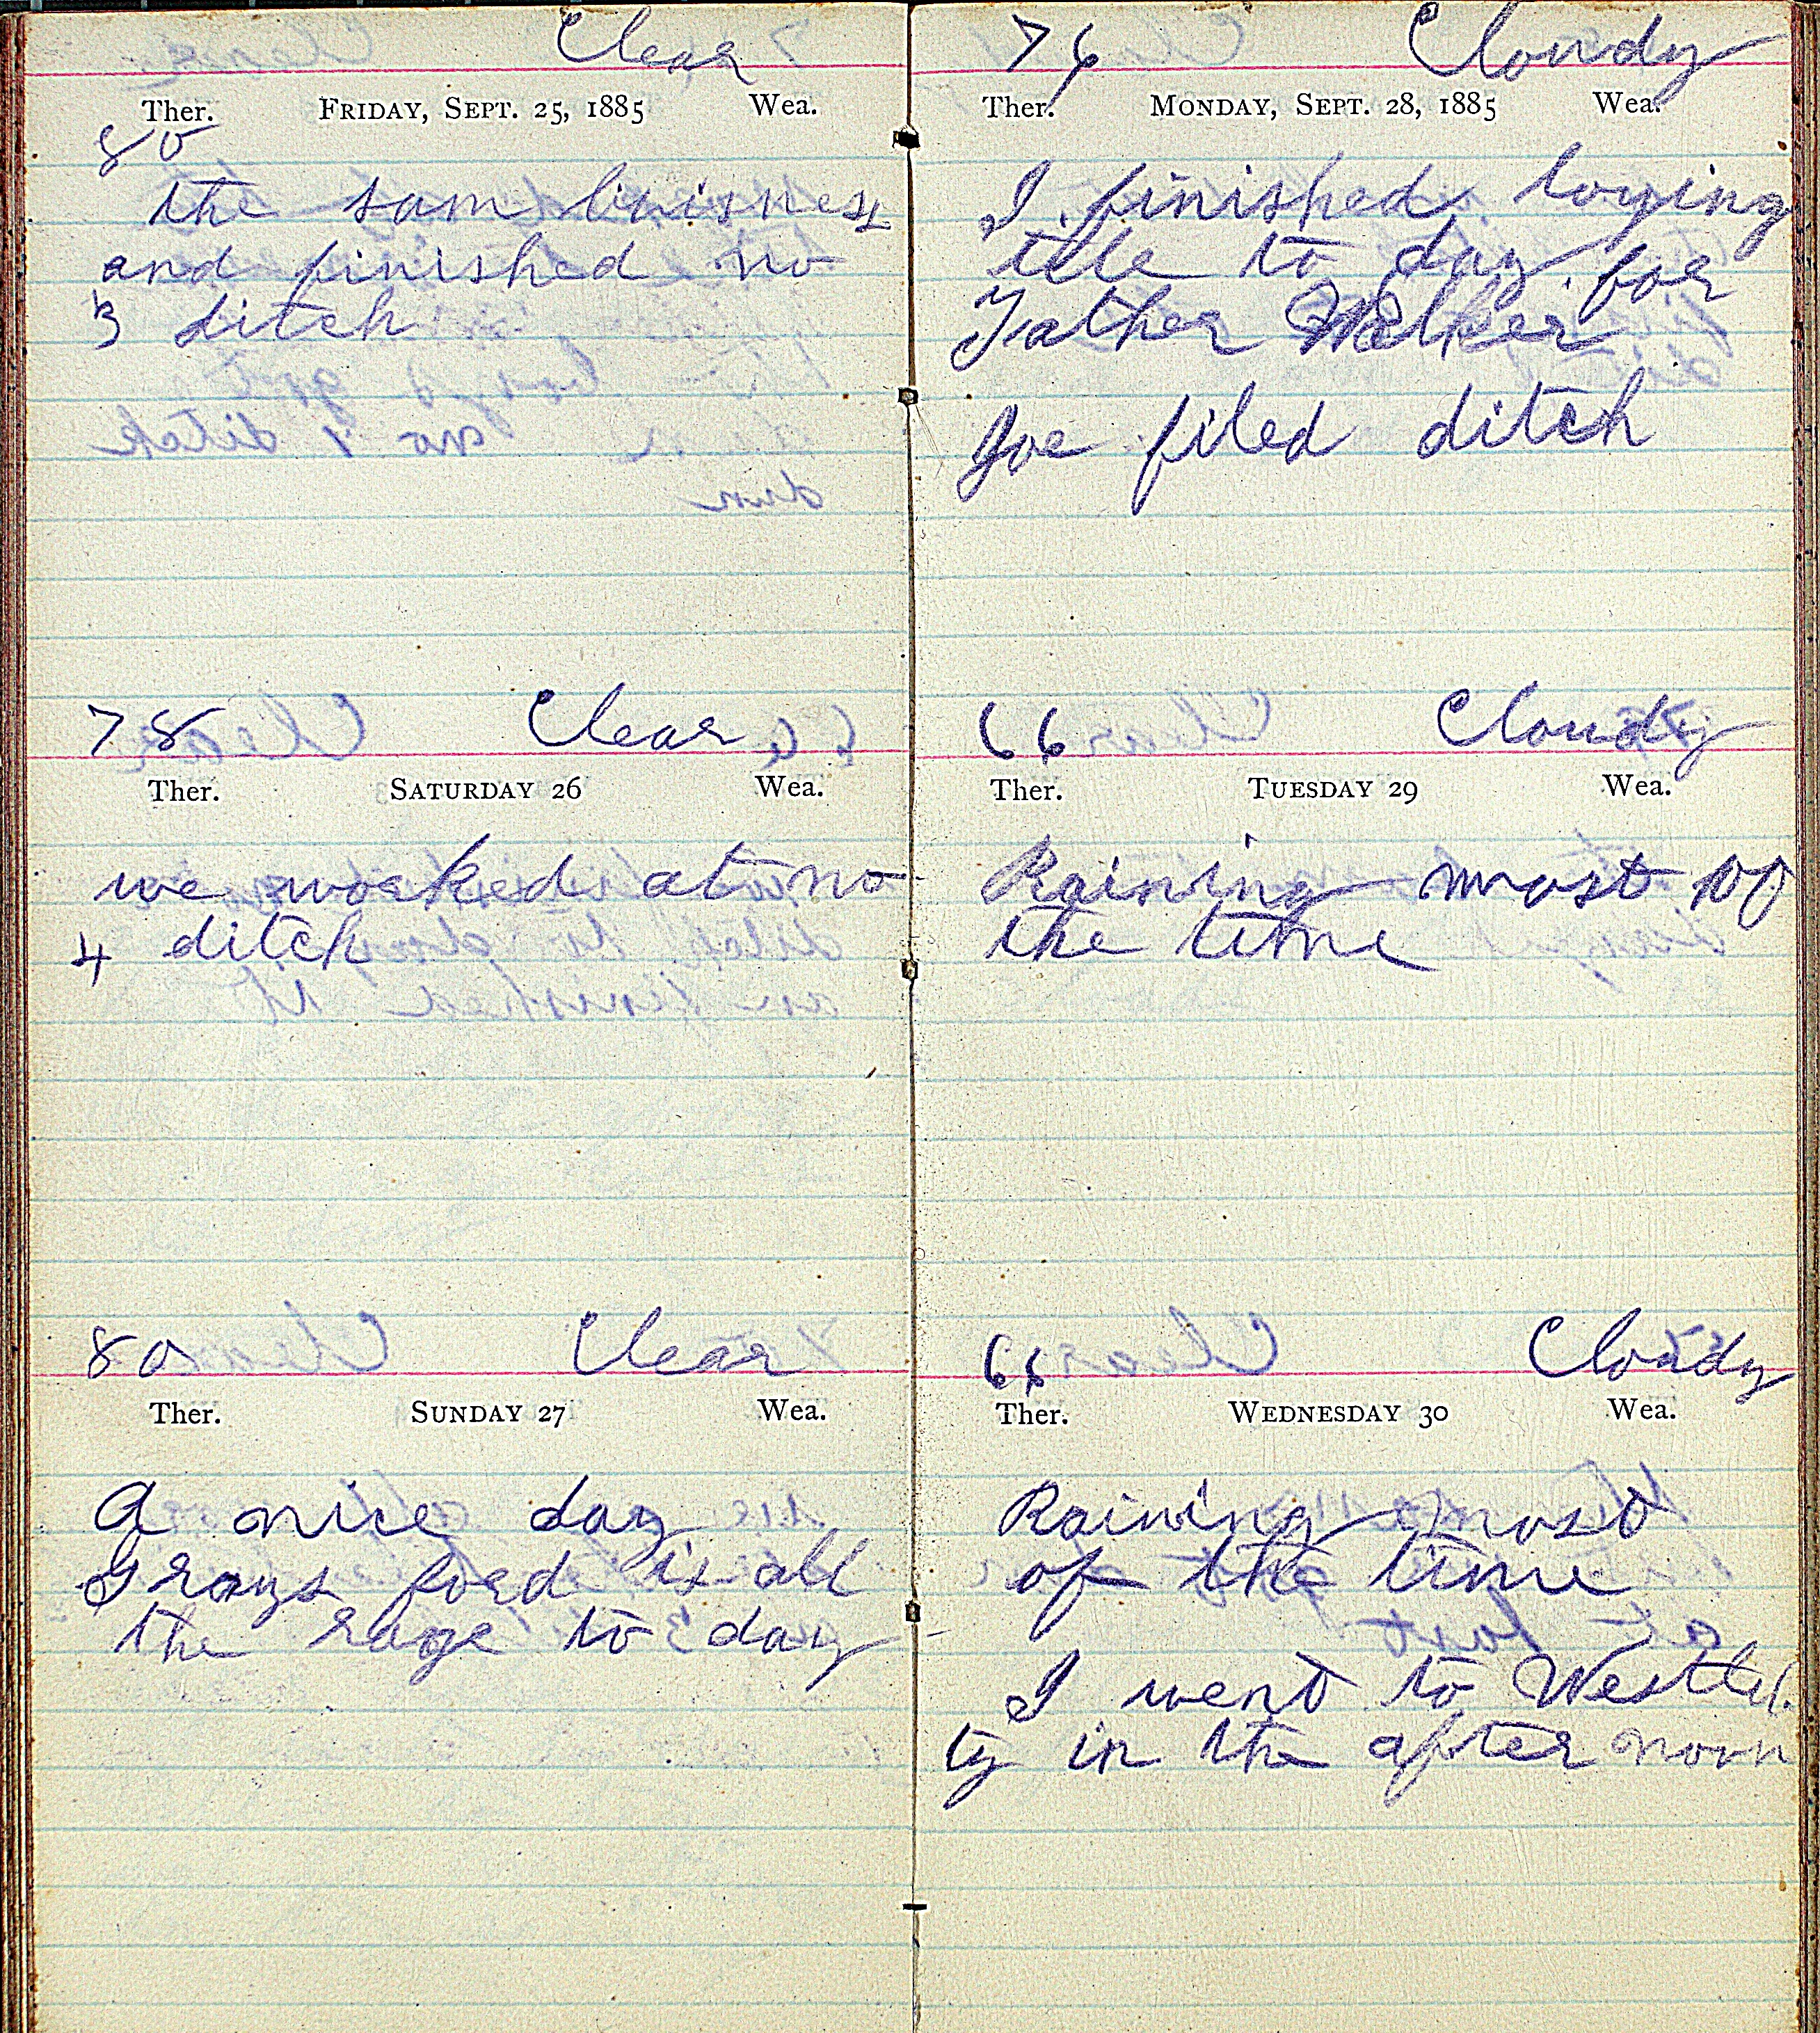 Clear
Ther. FRIDAY, SEPT. 25, 1885 Wea.
80
the sam buisness
and finished no
3 ditch
78 Clear
Ther. SATURDAY 26 Wea.
we worked at no
4 ditch
80 Clear
Ther. SUNDAY 27 Wea.
A nice day
Grays ford is all
the rage to day
76 Cloudy
Ther. MONDAY, SEPT. 28, 1885 Wea.
I finished laying
tile to day for
Father Walker
Joe filed ditch
66 Cloudy
Ther. TUESDAY 29 Wea.
Raining most of
the time
66 Cloudy
Ther. WEDNESDAY 30 Wea.
Raining most
of the time
I went to
ty in the after noon